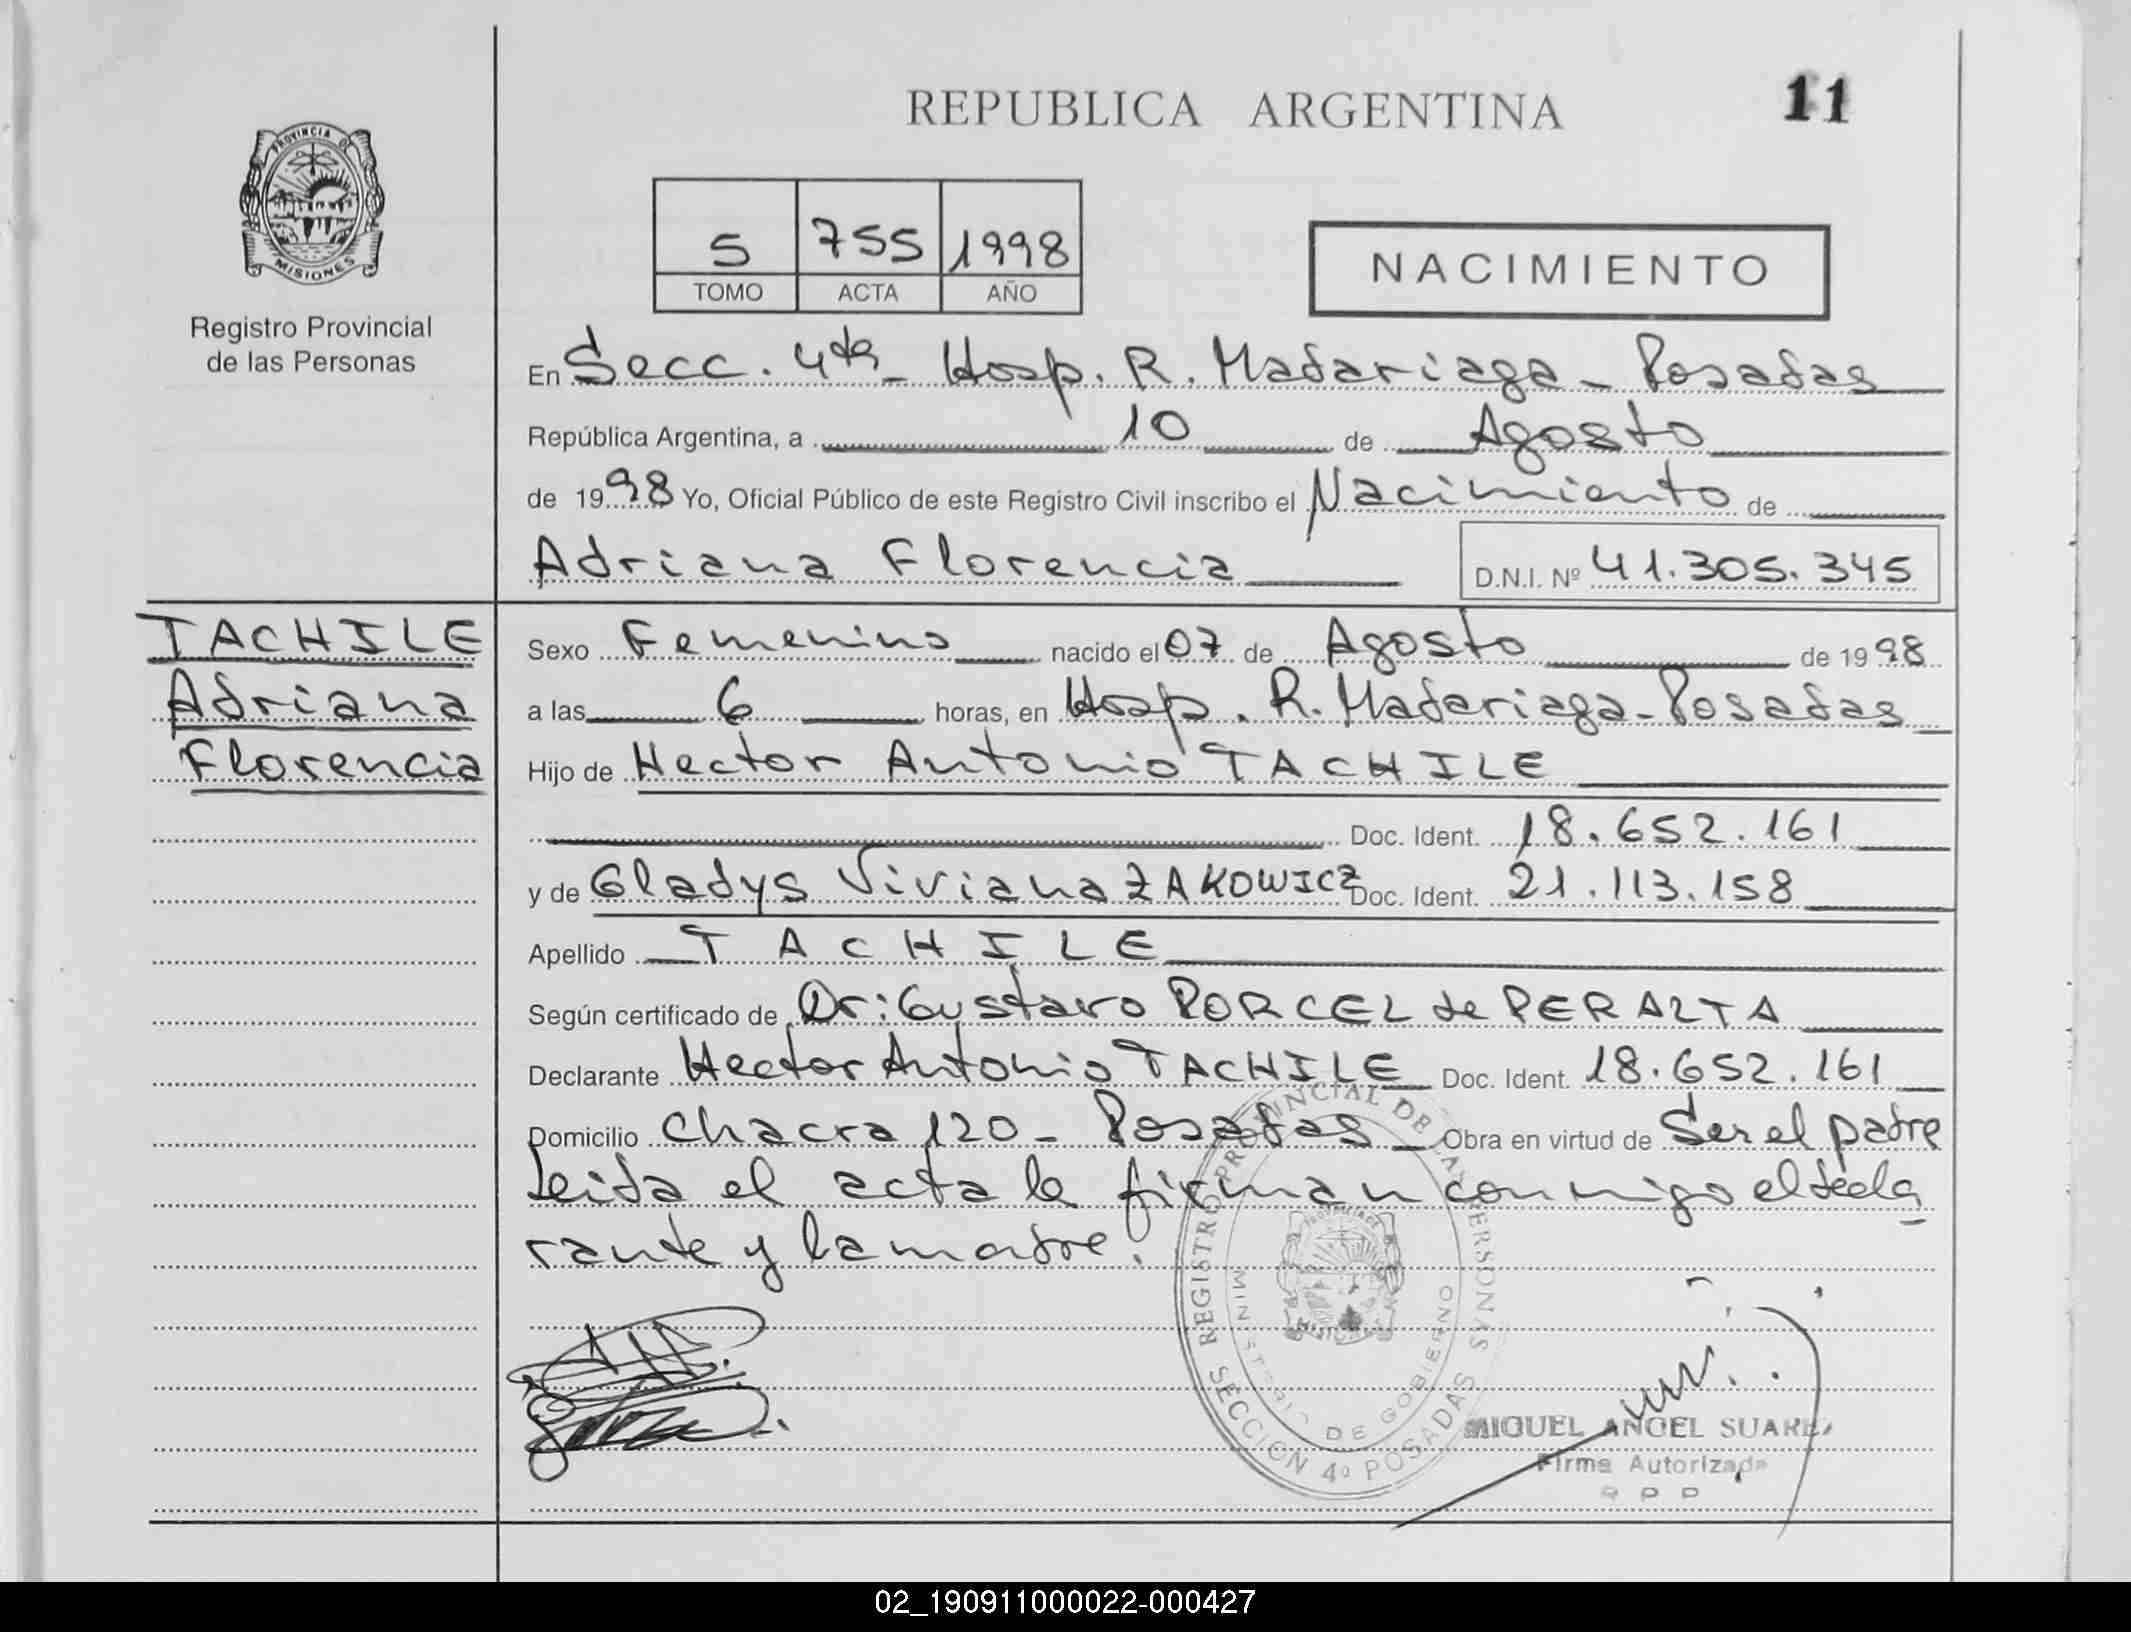 REPUBLICA ARGENTINA
11
PROVINCIA DE
MISIONES
Registro Provincial
de las Personas
5 755 1998
TOMO ACTA AÑO
NACIMIENTO
En Secc. 4ta - Hosp. R. Madariaga - Posadas
República Argentina, a 10 de Agosto
de 1998 Yo, Oficial Público de este Registro Civil inscribo el Nacimiento de
Adriana Florencia D.N.I. Nº 41.305.345
TACHILE
Adriana
Florencia
Sexo Femenino nacido el 07 de Agosto de 1998
a las 6 horas, en Hosp. R. Madariaga - Posadas
Hijo de Hector Antonio TACHILE
Doc. Ident. 18.652.161
y de Gladys Viviana ZAKOWICZ Doc. Ident. 21.113.158
Apellido TACHILE
Según certificado de Dr: Gustavo PORCEL de PERALTA
Declarante Hector Antonio TACHILE Doc. Ident. 18.652.161
Domicilio Chacra 120 - Posadas Obra en virtud de Ser el padre
Leida el acta la firman conmigo el decla
rante y la madre.
REGISTRO PROVINCIAL DE LAS PERSONAS
MINISTERIO DE GOBIERNO
SECCION 4º POSADAS
MIGUEL ANGEL SUAREZ
Firma Autorizada
02_190911000022-000427